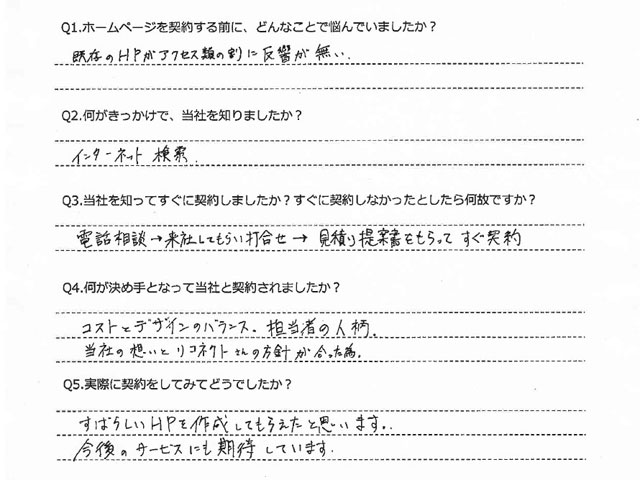 Q1.ホームページを契約する前に、どんなことで悩んでいましたか？
既存のHPがアクセス類の割に反響が無い.
Q2.何がきっかけで、当社を知りましたか？
インターネット 検索.
Q3.当社を知ってすぐに契約しましたか？すぐに契約しなかったとしたら何故ですか？
電話相談→来社してもらい打合せ→見積り提案書をもらってすぐ契約
Q4.何が決め手となって当社と契約されましたか？
コストとデザインのバランス. 担当者の人柄.
当社の想いとリコネクトさんの方針が合った為.
Q5.実際に契約をしてみてどうでしたか？
すばらしいHPを作成してもらえたと思います.
今後のサービスにも期待しています.